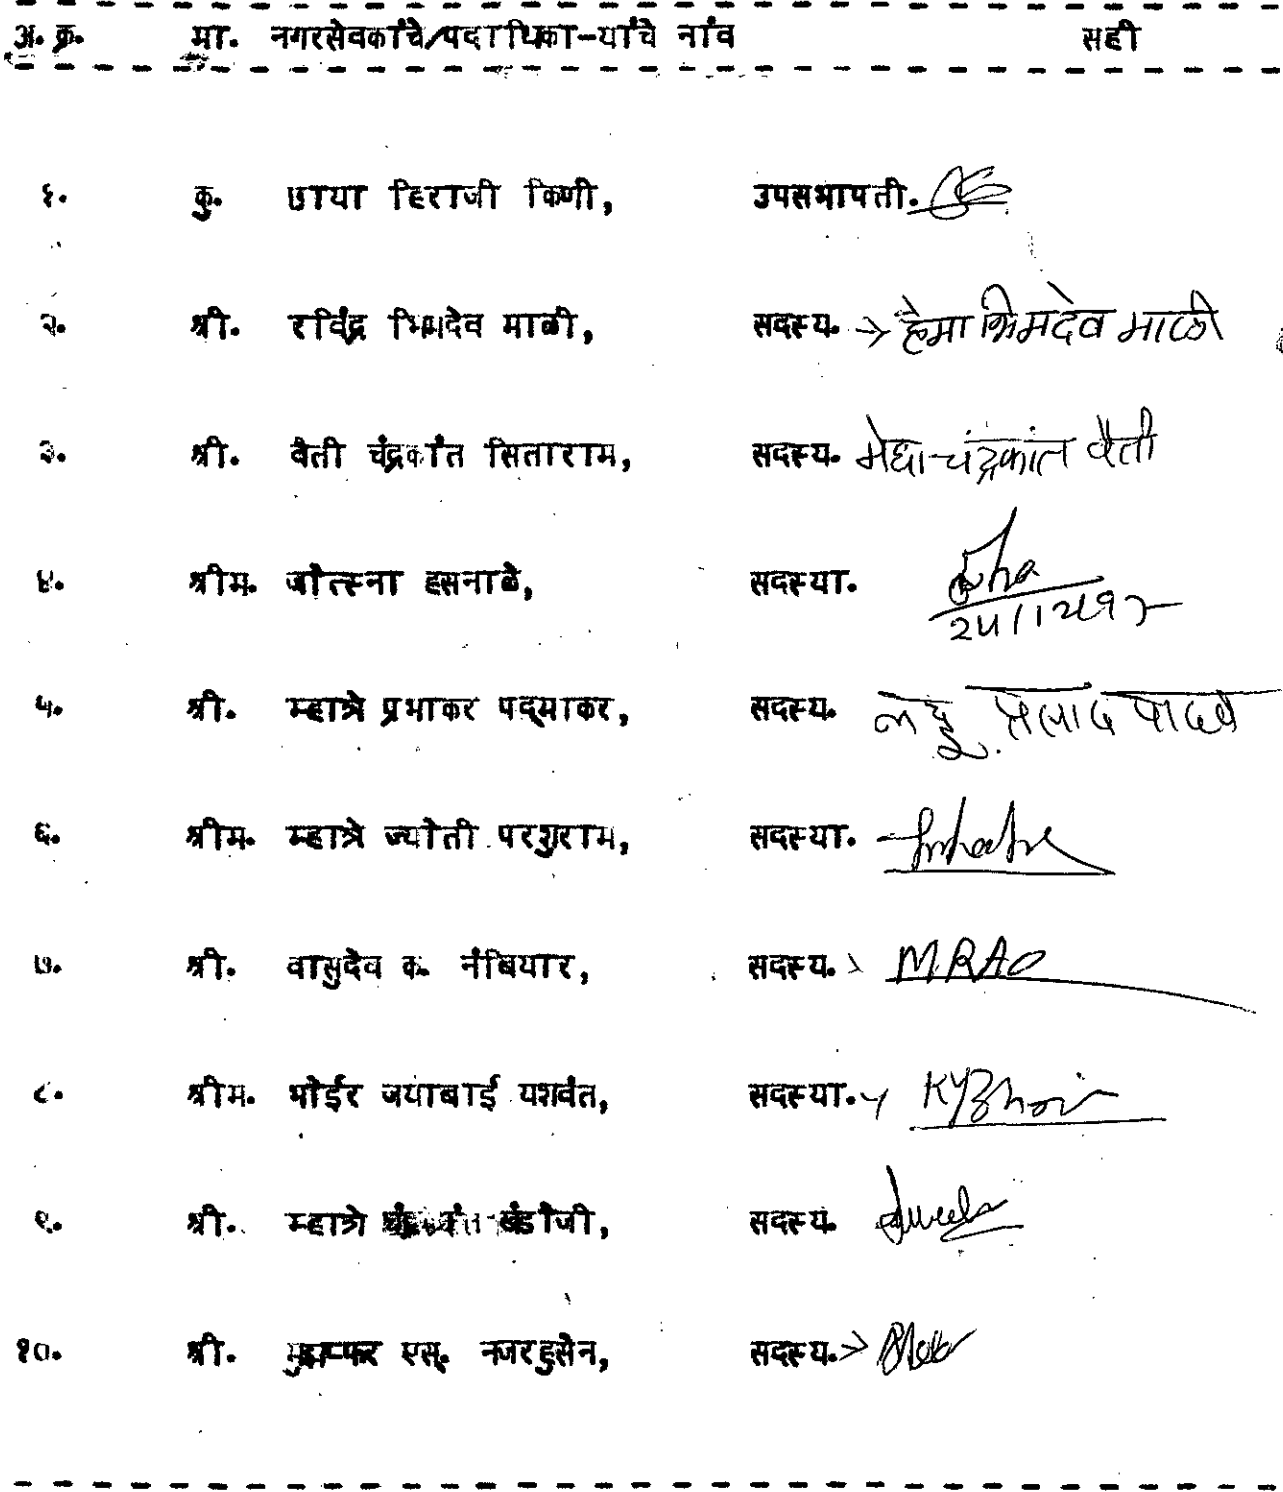 अ. क्र. मा. नगरसेवकांचे/पदाधिका-यांचे नांव सही
१. कु. छाया हिराजी किणी, उपसभापती.
२. श्री. रविंद्र भिमदेव माळी, सदस्य. → हेमा भिमदेव माळी
३. श्री. वैती चंद्रकांत सिताराम, सदस्य. मेघा चंद्रकांत वैती
४. श्रीम. जोत्स्ना हसनाळे, सदस्या.
५. श्री. म्हात्रे प्रभाकर पद्माकर, सदस्य. प्रसाद यादव
६. श्रीम. म्हात्रे ज्योती परशुराम, सदस्या.
७. श्री. वासुदेव क. नंबियार, सदस्य. M.RAO
८. श्रीम. भोईर जयाबाई यशवंत, सदस्या. KYBhoir
९. श्री. म्हात्रे खंडोजी, सदस्य.
१०. श्री. एस. नजरहुसेन, सदस्य.